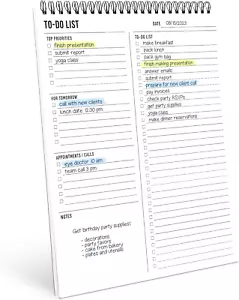 TO-DO LIST
DATE 09/15/2023
TOP PRIORITIES
finish presentation
submit report
yoga class
FOR TOMORROW
call with new clients
lunch date: 12:30 pm
APPOINTMENTS / CALLS
eye doctor 10 am
team call 3 pm
NOTES
Get birthday party supplies!
- decorations
- party favors
- cake from bakery
- plates and utensils
TO-DO LIST
make breakfast
pack lunch
pack gym bag
finish making presentation
answer emails
submit report
prepare for new client call
pay invoices
check party RSVPs
get party supplies
yoga class
make dinner reservations